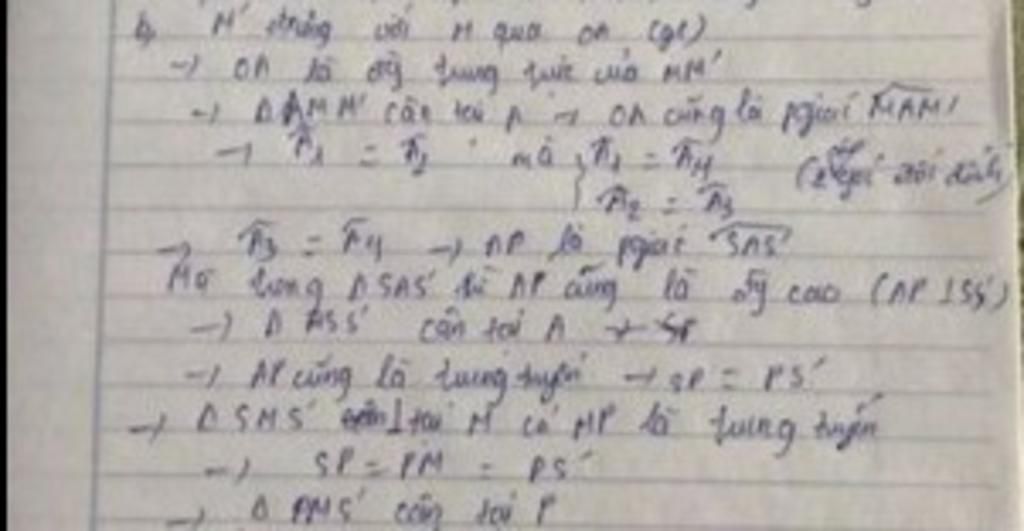 b, M' đ/xứng với M qua OA (gt)
→ OA là đg trung trực của MM'
→ Δ AMM' cân tại A → OA cũng là pgiác \widehat{MAM'}
→ \widehat{A_1} = \widehat{A_2} mà { \widehat{A_1} = \widehat{A_4} (2 góc đối đỉnh)
\widehat{A_2} = \widehat{A_3}
→ \widehat{A_3} = \widehat{A_4} → AP là pgiác \widehat{SAS'}
Mà trong Δ SAS' thì AP cũng là đg cao (AP ⊥ SS')
→ Δ ASS' cân tại A
→ AP cũng là trung tuyến → SP = PS'
→ Δ SMS' ⊥ tại M có MP là trung tuyến
→ SP = PM = PS'
→ Δ PMS' cân tại P